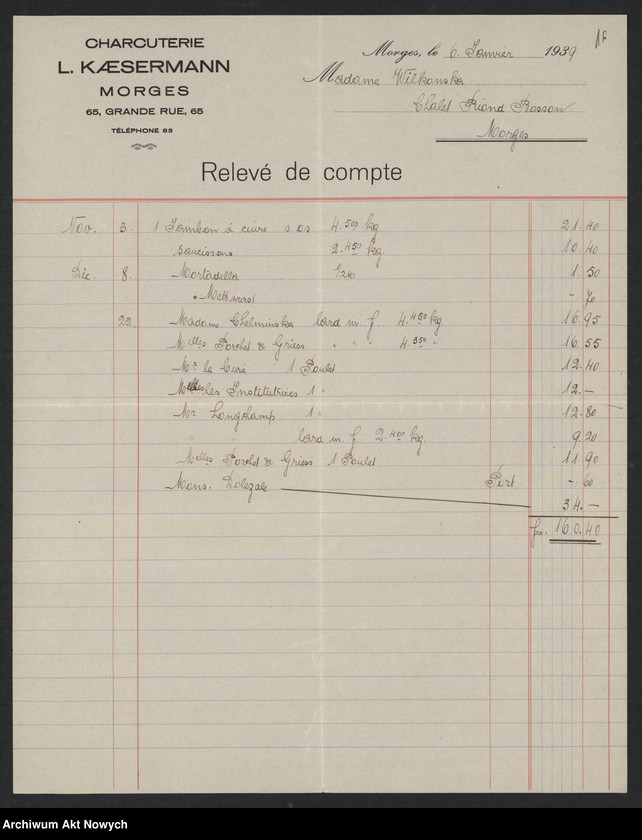 CHARCUTERIE
L. KÆSERMANN
MORGES
65, GRANDE RUE, 65
TÉLÉPHONE 83
18
Morges, le 6. Janvier 1939
Madame Wilkonska
Chalet Riond Bosson
Morges
Relevé de compte
Nov. 3. 1 Jambon à cuire s os 4.500 kg 21.40
saucissons 2.450 kg. 10.40
Déc. 8. Mortadella 1.50
Mettwurst -.70
22. Madame Chelminska lard m. f. 4.450 kg. 16.95
Melles & Griess " " " 4.350 " 16.55
Mr le Curé 1 Poulet 12.40
les Institutrices 1 " 12.-
Mr Longchamp 1 " 12.80
" " lard m. f. 2.400 kg. 9.20
Melles & Griess 1 Poulet 11.90
Mons. Dolezale Port -.60
34.-
frs. 160.40
Archiwum Akt Nowych